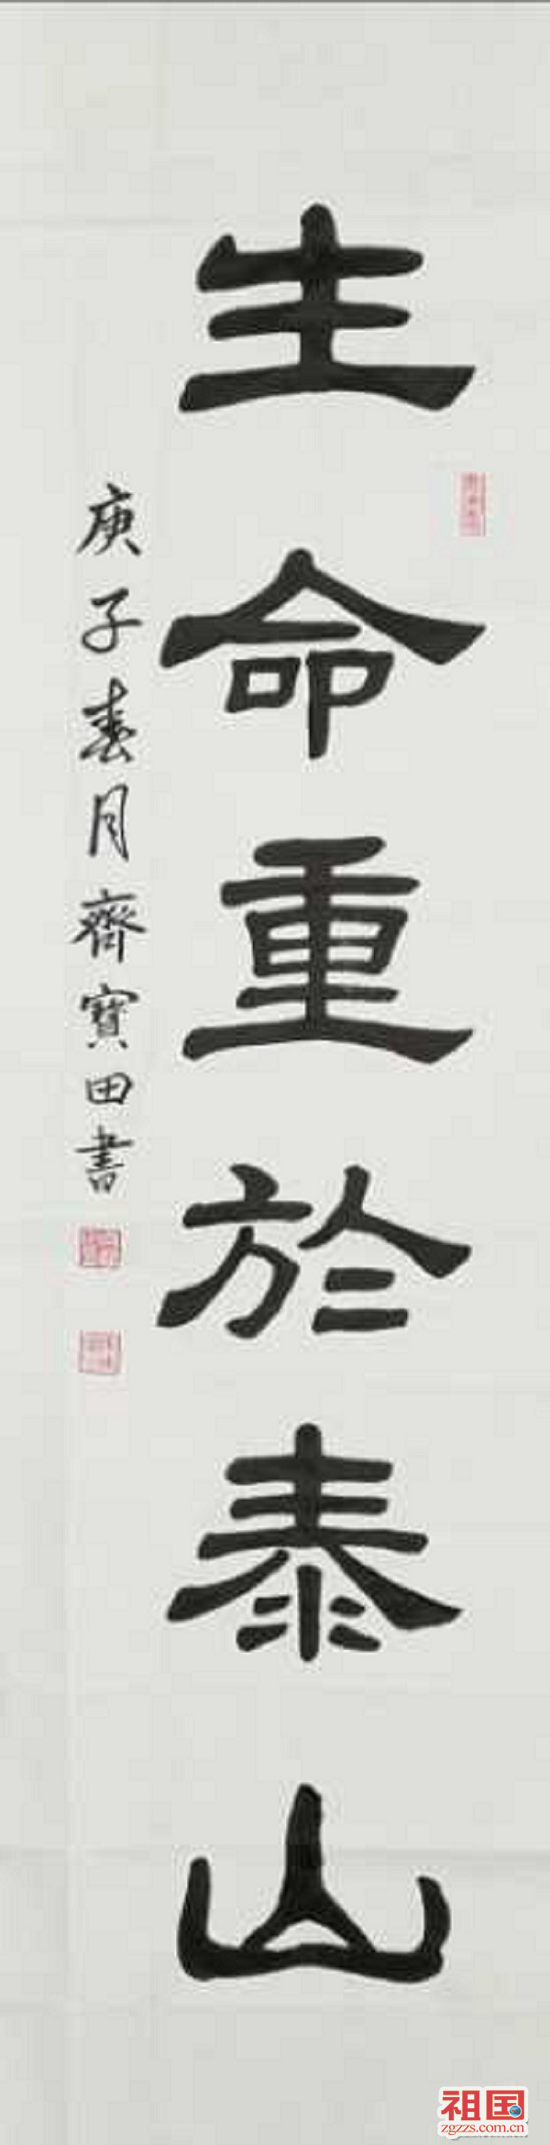 生命重於泰山
庚子春月齊寳田書
祖国
zgzzs.com.cn